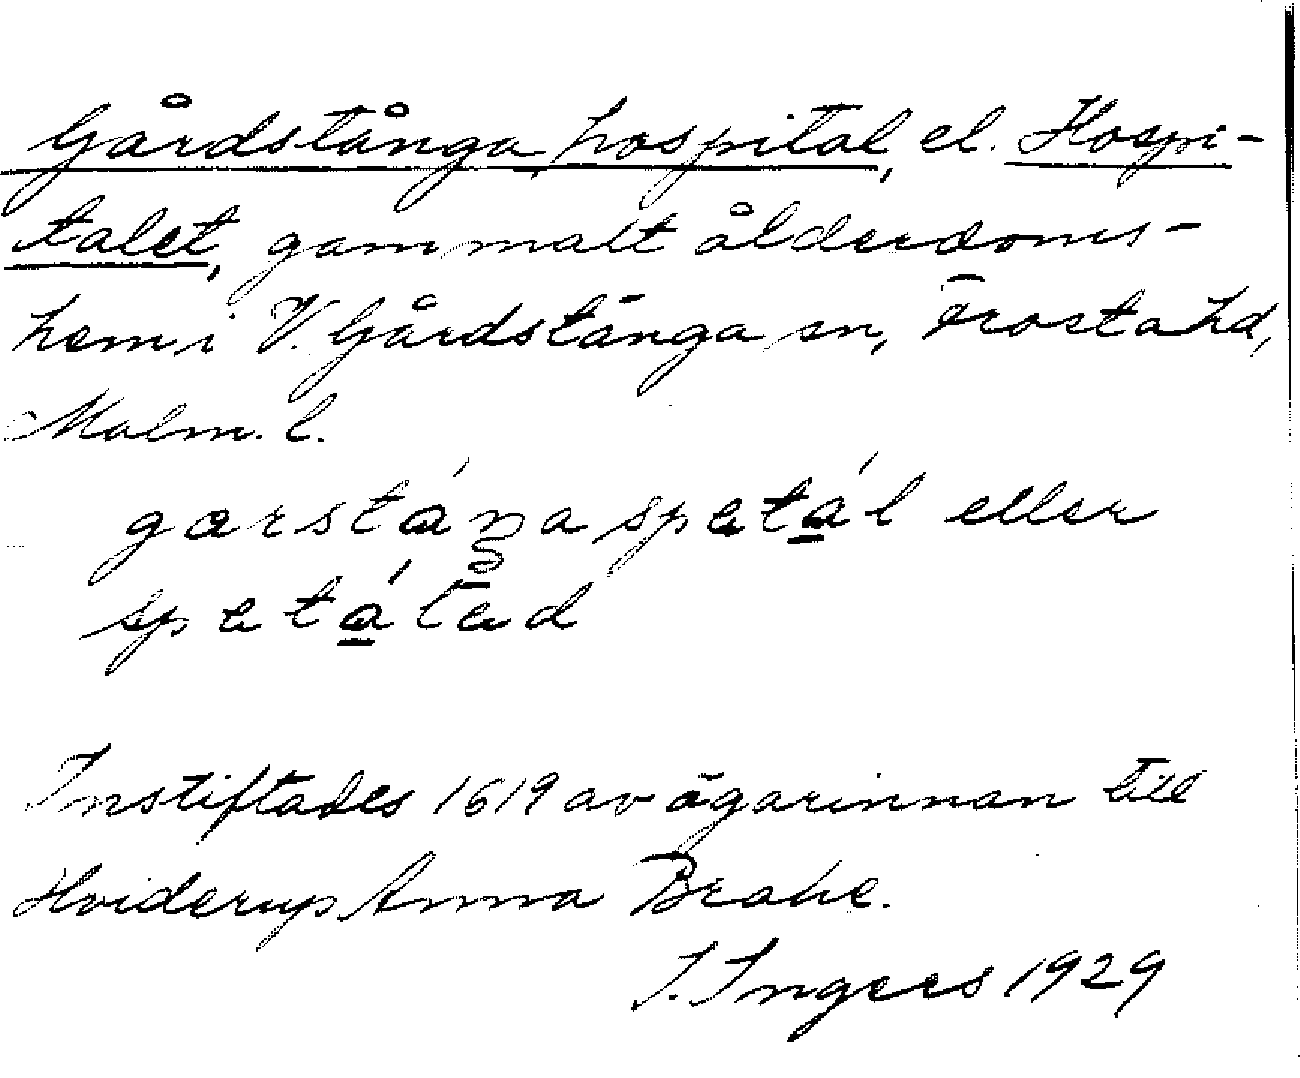 Gårdstånga hospital, el. Hospi-
talet, gammalt ålderdoms-
hem i V. Gårdstånga sn, Frosta hd,
Malm. l.
garstáŋa spetál eller
spetáləd
Instiftades 1619 av ägarinnan till
Hviderup Anna Brahe.
I. Ingers 1929